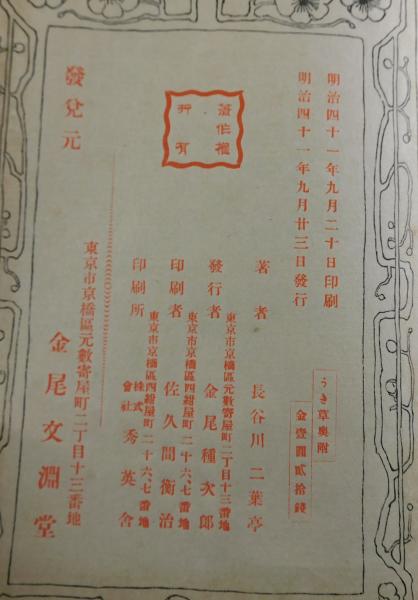 明治四十一年九月二十日印刷
明治四十一年九月廿三日發行
うき草奥附
金壹圓貳拾錢
著作權
所有
著者 長谷川二葉亭
東京市京橋區元數寄屋町二丁目十三番地
發行者 金尾種次郎
東京市京橋區四紺屋町二十六、七番地
印刷者 佐久間衡治
東京市京橋區四紺屋町二十六、七番地
印刷所 株式會社 秀英舍
發兌元
東京市京橋區元數寄屋町二丁目十三番地
金尾文淵堂